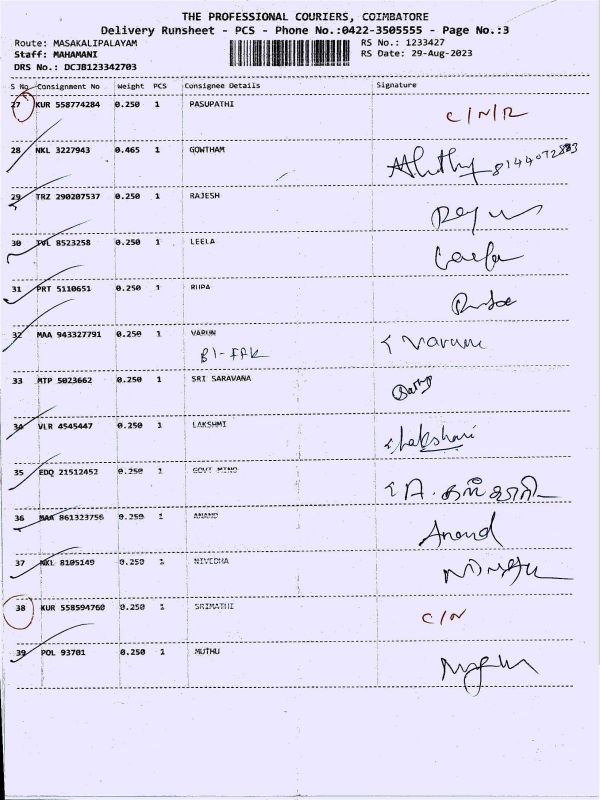 THE PROFESSIONAL COURIERS, COIMBATORE
Delivery Runsheet - PCS - Phone No.:0422-3505555 - Page No.:3
Route: MASAKALIPALAYAM RS No.: 1233427
Staff: MAHAMANI RS Date: 29-Aug-2023
DRS No.: DCJB123342703
S No. Consignment No Weight PCS Consignee Details Signature
27 KUR 558774284 0.250 1 PASUPATHI C/N/R
28 NKL 3227943 0.465 1 GOWTHAM
29 TRZ 290207537 0.250 1 RAJESH
30 TVL 8523258 0.250 1 LEELA
31 PRT 5110651 0.250 1 RUPA
32 MAA 943327791 0.250 1 VARUN Varun
33 MTP 5023662 0.250 1 SRI SARAVANA
34 VLR 4545447 0.250 1 LAKSHMI
35 EDQ 21512452 0.250 1 GOVT MIND
36 MAA 861323756 0.250 1 ANAND Anand
37 NKL 8105149 0.250 1 NIVEDHA
38 KUR 558594760 0.250 1 SRIMATHI C/N
39 POL 93701 0.250 1 MUTHU